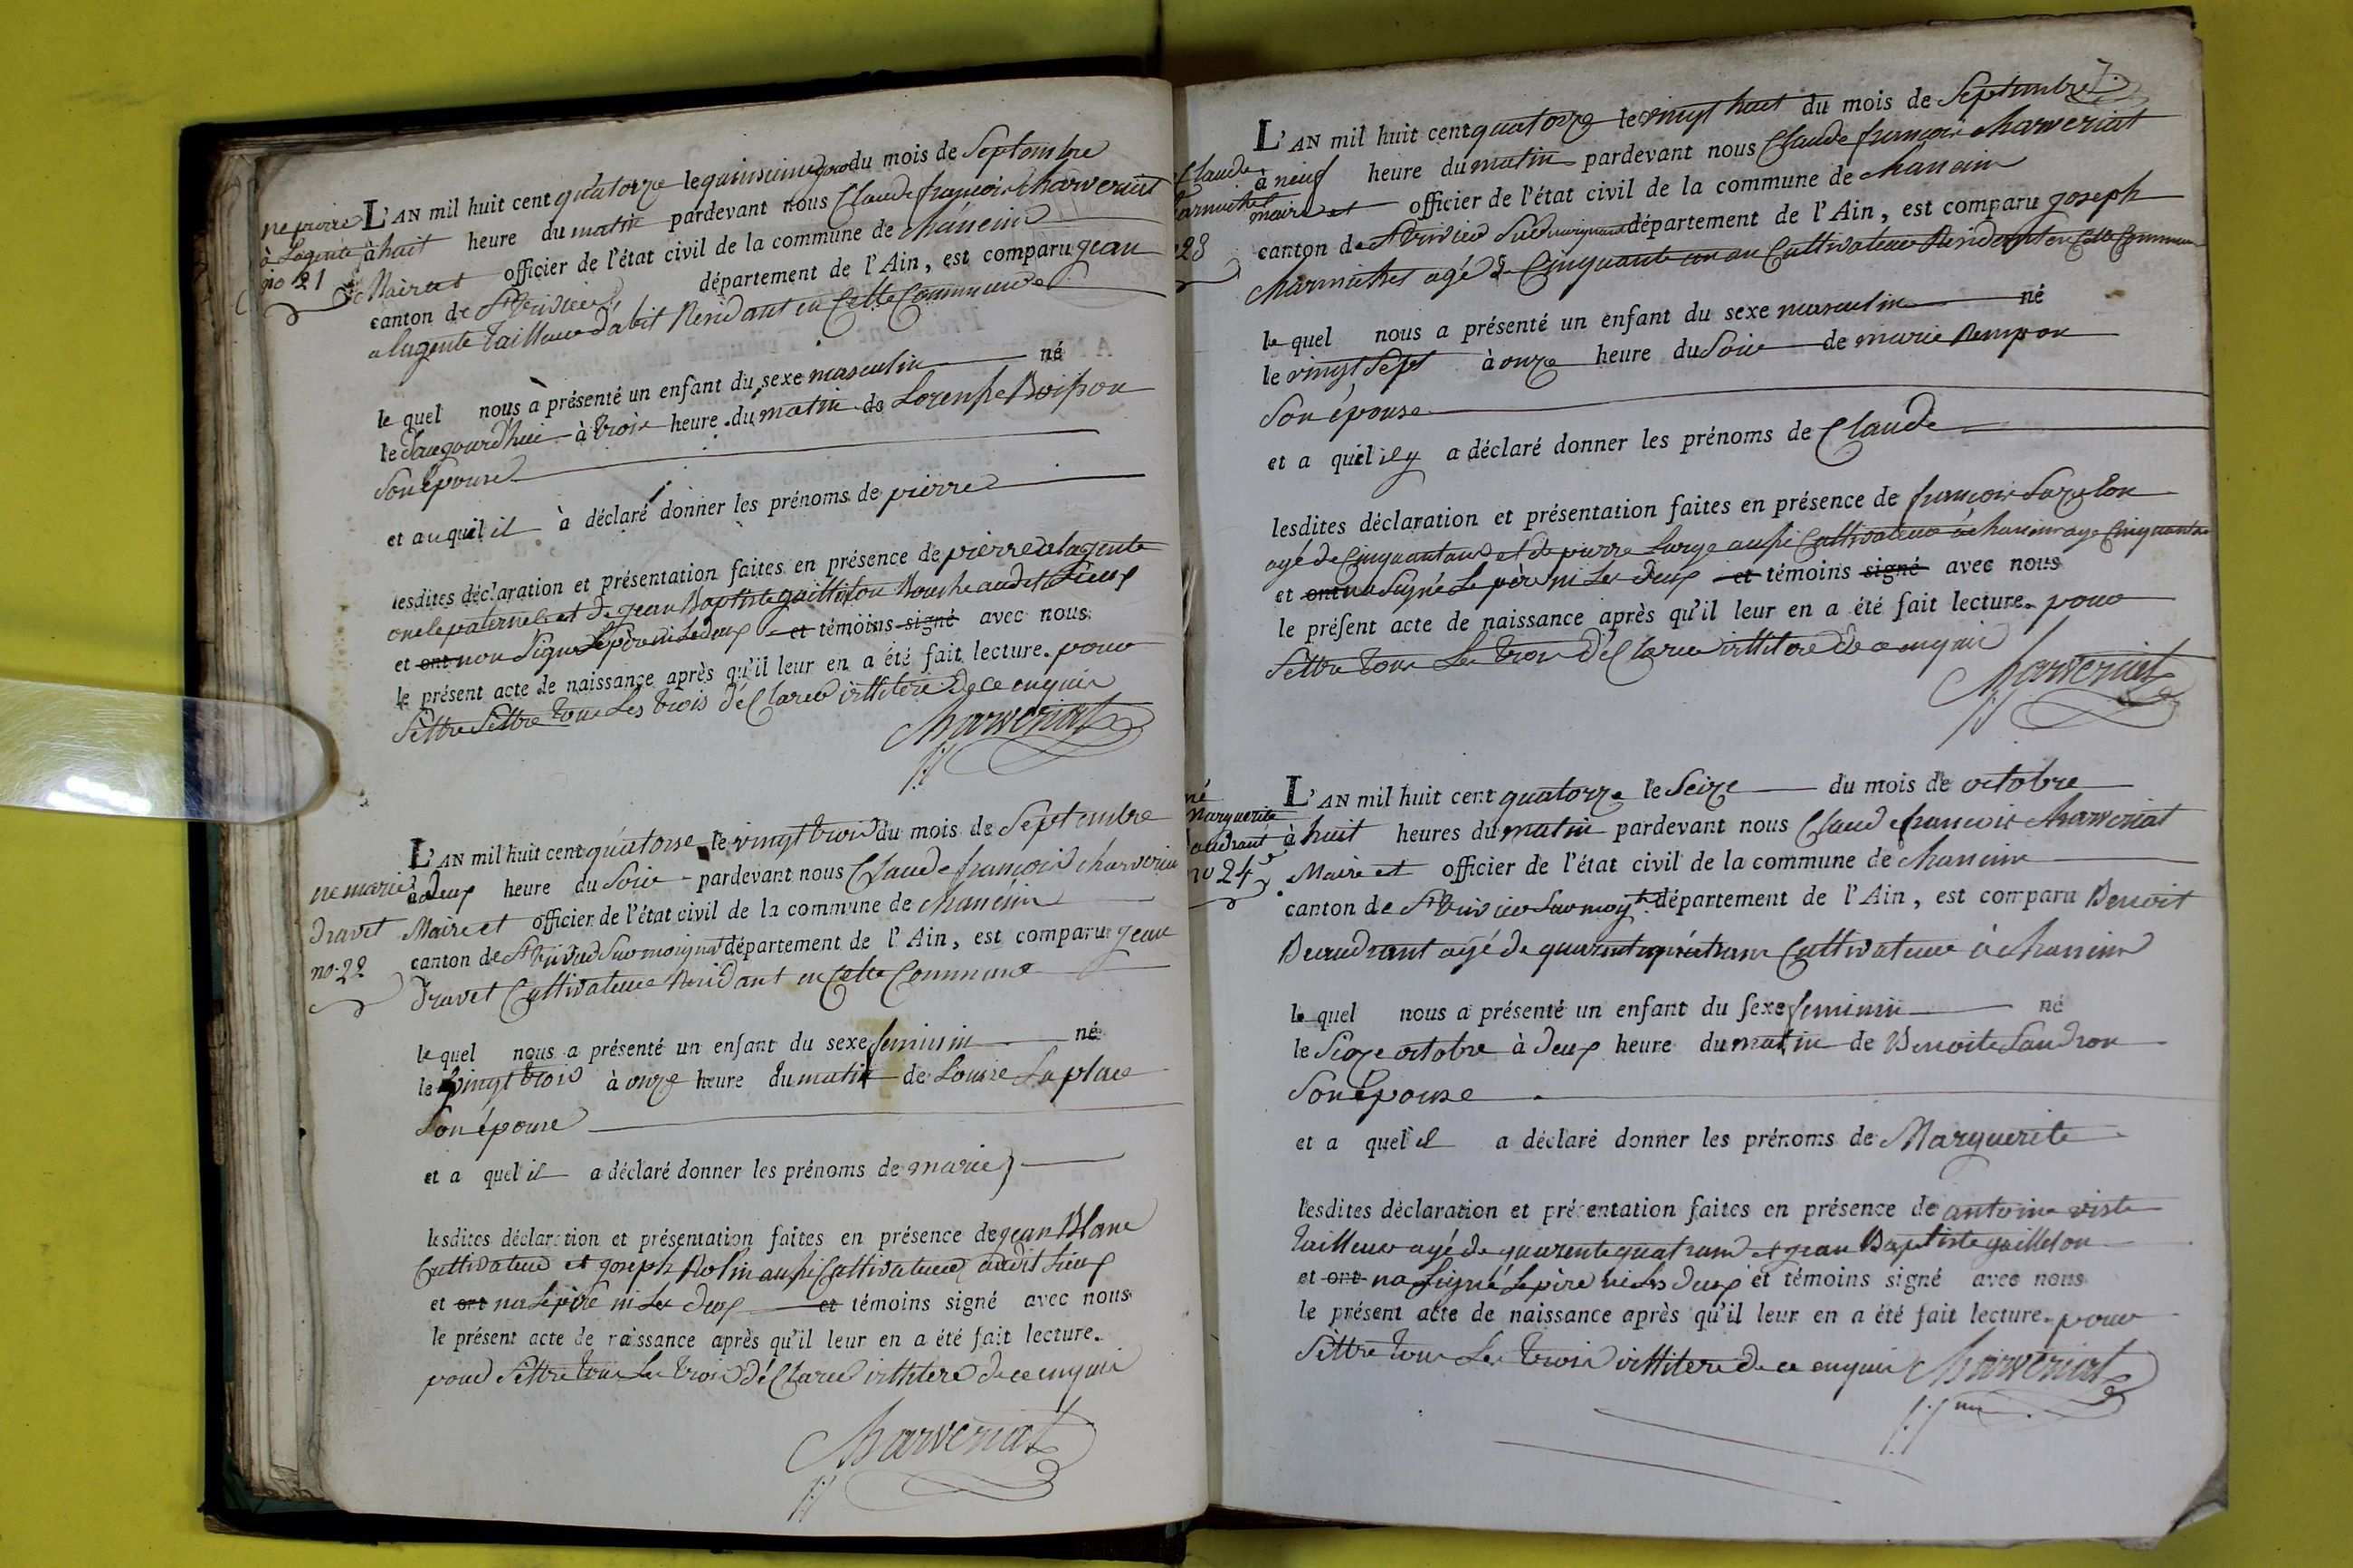 ne pierre
à Lagente
no 21
L'AN mil huit cent quatorze le quinsieme jour du mois de Septembre
à huit heure du matin pardevant nous Claude françois Charveriat
Maire et officier de l'état civil de la commune de chaneins
canton de St Trivier département de l'Ain, est comparu jean
a lagente tailleur d'abit Residant en Cette Commune
le quel nous à présenté un enfant du sexe masculin né
le daujourdhui à trois heure du matin de Lorense Boisson
Son Epouse
et au quel il à déclaré donner les prénoms de pierre
lesdites déclaration et présentation faites en présence de pierre alagente
oncle paternel et de jean Baptiste gailleton audit Lieux
et ont non Signé Le père ni Les deux et témoins signé avec nous
le présent acte de naissance après qu'il leur en a été fait lecture. pour
Settre Settre tous Les trois déClaré illitere de ce enquis
Charveriat
ne marie
Travet
no 22
L'AN mil huit cent quatorse le vingt trois du mois de Septembre
à deux heure du Soir pardevant nous Claude françois charveriat
Maire et officier de l'état civil de la commune de chaneins
canton de St Trivier Sur moignat département de l'Ain, est comparu jean
Travet Cultivateur Residant en Cette Commune
le quel nous a présenté un enfant du sexe feminin né
le vingt trois à onze heure du matin de Louise La place
Son épouse
et a quel il a déclaré donner les prénoms de marie
lesdites déclaration et présentation faites en présence de jean Blanc
Cultivateur et joseph Rolin aussi Cultivateur audit Lieux
et ont na Le père ni Les deux et témoins signé avec nous
le présent acte de naissance après qu'il leur en a été fait lecture.
pour Settre tous Les trois déClaré illitere de ce enquis
Charveriat
7.
Claude
Charmettes
23
L'AN mil huit cent quatorze le vingt huit du mois de Septembre
à neuf heure du matin pardevant nous Claude françois charveriat
maire et officier de l'état civil de la commune de chaneins
canton de St Trivier Sur moignans département de l'Ain, est comparu joseph
Charmettes agé de Cinquante un an Cultivateur Residant en Cette Commune
le quel nous a présenté un enfant du sexe masculin né
le vingt Sept à onze heure du Soir de marie Rempon
Son épouse
et a quel il y a déclaré donner les prénoms de Claude
lesdites déclaration et présentation faites en présence de françois
agé de Cinquant ans et de pierre Large aussi Cultivateur à chaneins age Cinquante
et ont na Signé Le père ni Les deux et témoins signé avec nous
le présent acte de naissance après qu'il leur en a été fait lecture. pour
Settre tous Les trois déClaré illitere de ce enquis
Charveriat
né
Marguerite
no 24
L'AN mil huit cent quatorze le Seize du mois de octobre
à huit heures du matin pardevant nous Claude francois Charveriat
Maire et officier de l'état civil de la commune de chaneins
canton de St Trivier Sur moyt département de l'Ain, est comparu Benoit
Beaudrant agé de quarent quatrans Cultivateur à chaneins
le quel nous a présenté un enfant du sexe feminin né
le Seize octobre à deux heure du matin de Benoite Landron
Son Epouse
et a quel il a déclaré donner les prénoms de Marguerite
lesdites déclaration et présentation faites en présence de antoine viste
tailleur agé de quarente quatrans et jean Baptiste gailleton
et ont na Signé Le père ni Les deux et témoins signé avec nous
le présent acte de naissance après qu'il leur en a été fait lecture. pour
Settre tous Les trois illitere de ce enquis Charveriat